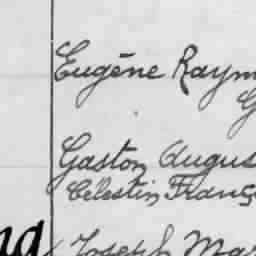 Eugène Raym
G
Gaston Augus
Célestin Franç
ng Joseph Mar